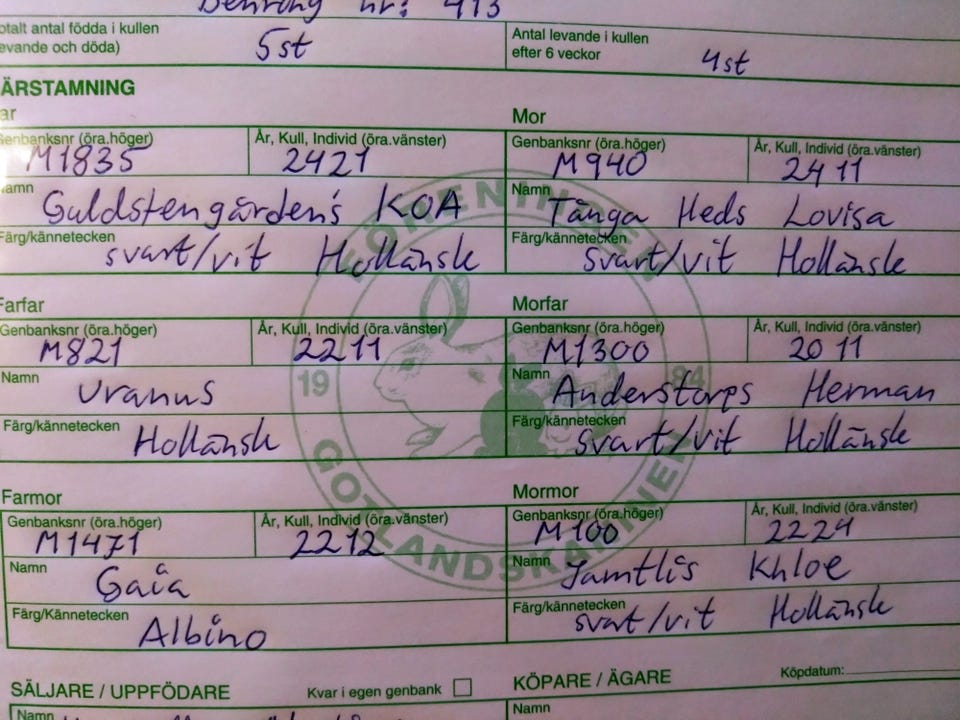 nr: 413
otalt antal födda i kullen
evande och döda)
5st
Antal levande i kullen
efter 6 veckor
4st
ÄRSTAMNING
ar
Mor
Genbanksnr (öra.höger)
M1835
År, Kull, Individ (öra.vänster)
2421
Genbanksnr (öra.höger)
M940
År, Kull, Individ (öra.vänster)
2411
Namn
Guldstengården's KOA
Namn
Tånga Heds Lovisa
Färg/kännetecken
svart/vit Hollänsk
Färg/kännetecken
svart/vit Hollänsk
Farfar
Morfar
Genbanksnr (öra.höger)
M821
År, Kull, Individ (öra.vänster)
2211
Genbanksnr (öra.höger)
M1300
År, Kull, Individ (öra.vänster)
2011
Namn
Uranus
Namn
Anderstorps Herman
Färg/kännetecken
Hollänsk
Färg/kännetecken
svart/vit Hollänsk
FÖRENINGEN
1984
GOTLANDSKANINEN
Farmor
Mormor
Genbanksnr (öra.höger)
M1471
År, Kull, Individ (öra.vänster)
2212
Genbanksnr (öra.höger)
M100
År, Kull, Individ (öra.vänster)
2224
Namn
Gaia
Namn
Jamtlis Khloe
Färg/Kännetecken
Albino
Färg/kännetecken
svart/vit Hollänsk
SÄLJARE / UPPFÖDARE
Kvar i egen genbank
KÖPARE / ÄGARE
Köpdatum:
Namn
Namn